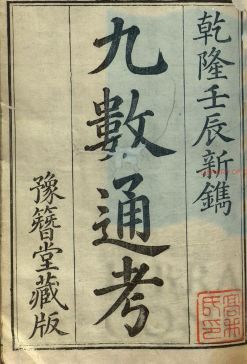 乾隆壬辰新鐫
九數通考
豫簪堂藏版